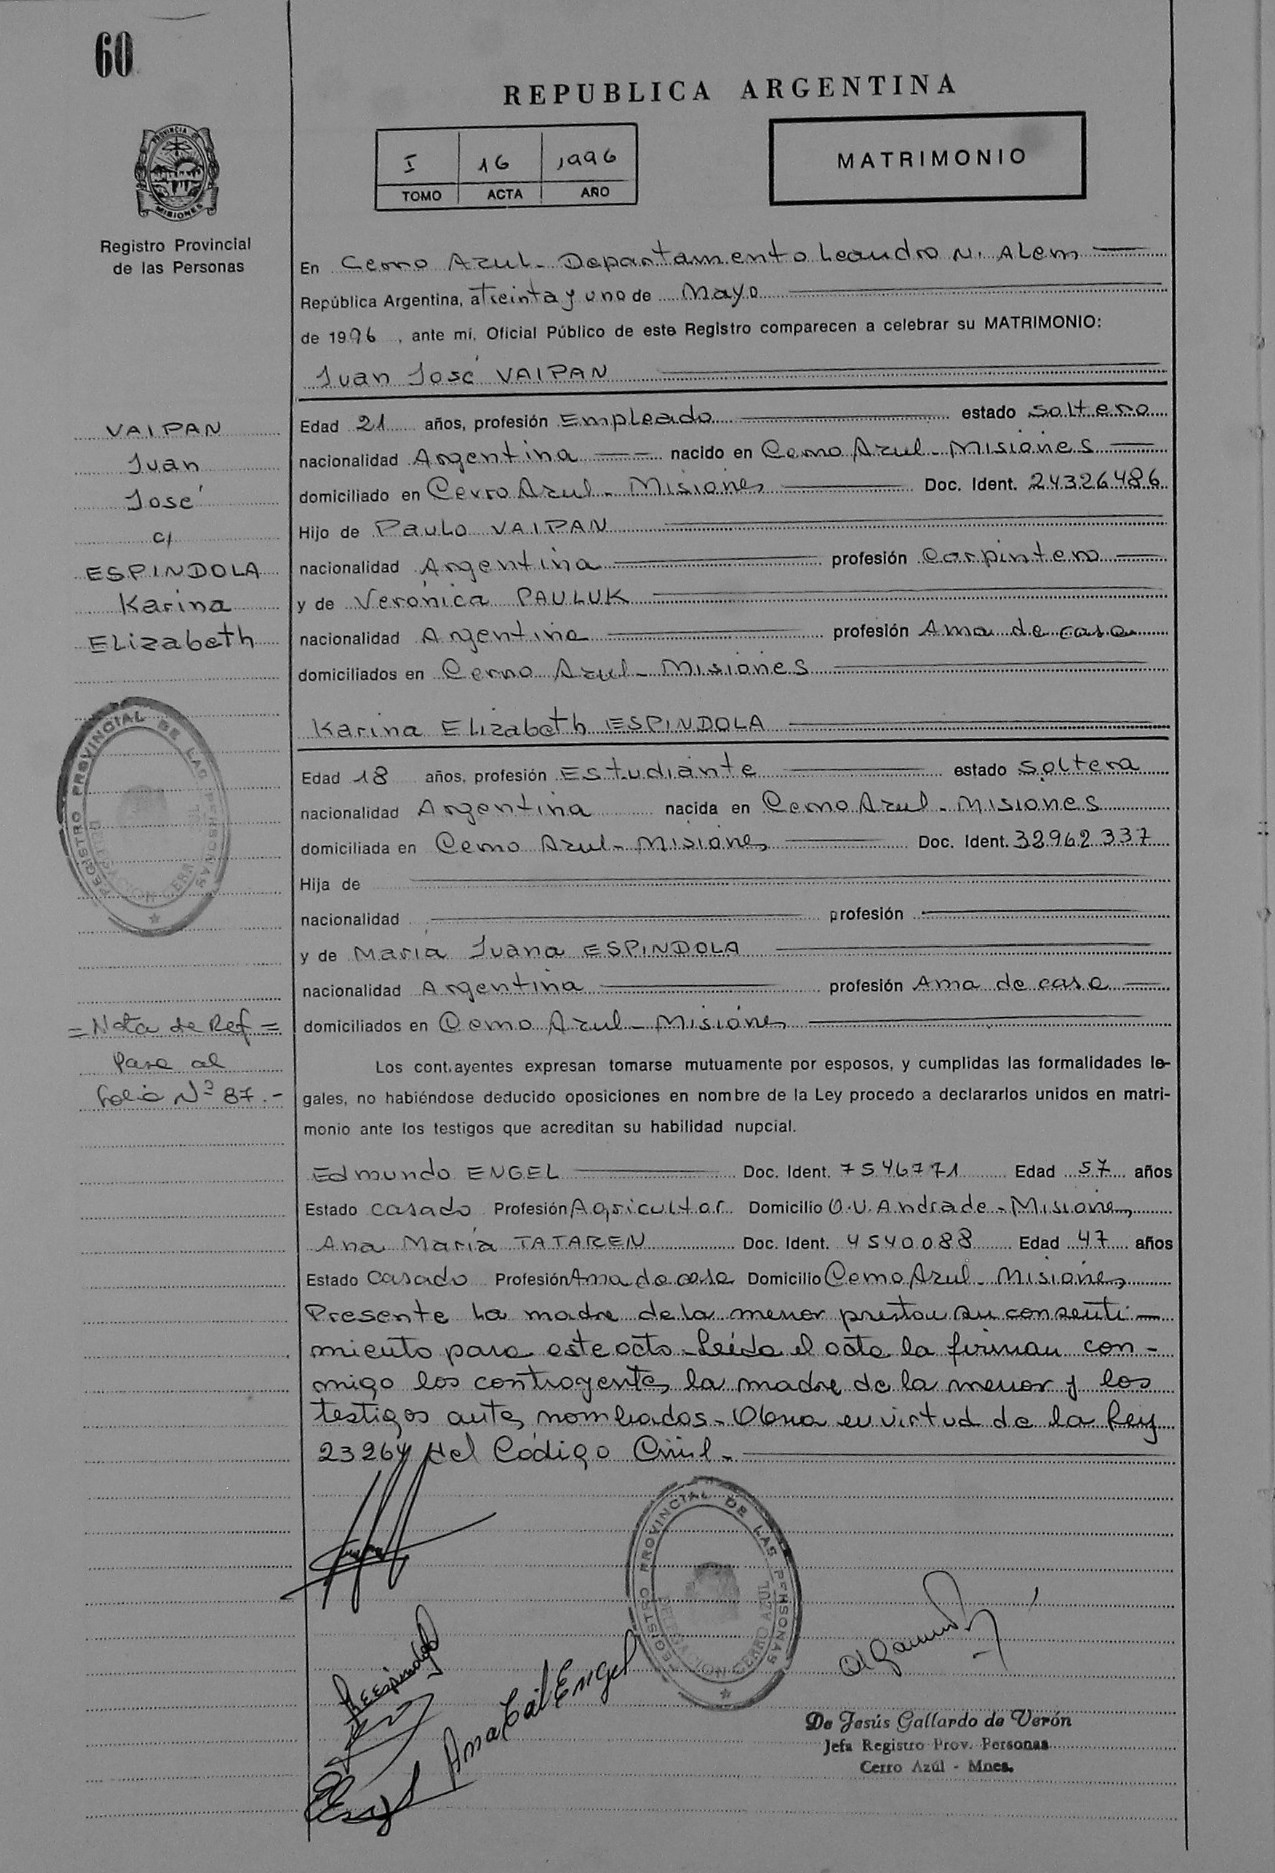 60
REPUBLICA ARGENTINA
I 16 1996
TOMO ACTA AÑO
MATRIMONIO
PROVINCIA DE MISIONES
Registro Provincial
de las Personas
En Cerro Azul - Departamento Leandro N. Alem
República Argentina, a treinta y uno de Mayo
de 1996, ante mí, Oficial Público de este Registro comparecen a celebrar su MATRIMONIO:
Juan José VAIPAN
Edad 21 años, profesión Empleado estado soltero
nacionalidad Argentina nacido en Cerro Azul - Misiones
domiciliado en Cerro Azul - Misiones Doc. Ident. 24326486
Hijo de Paulo VAIPAN
nacionalidad Argentina profesión Carpintero
y de Verónica PAULUK
nacionalidad Argentina profesión Ama de casa
domiciliados en Cerro Azul - Misiones
Karina Elizabeth ESPINDOLA
Edad 18 años, profesión Estudiante estado soltera
nacionalidad Argentina nacida en Cerro Azul - Misiones
domiciliada en Cerro Azul - Misiones Doc. Ident. 32962337
Hija de
nacionalidad profesión
y de María Juana ESPINDOLA
nacionalidad Argentina profesión Ama de casa
domiciliados en Cerro Azul - Misiones
Los cont.ayentes expresan tomarse mutuamente por esposos, y cumplidas las formalidades le-
gales, no habiéndose deducido oposiciones en nombre de la Ley procedo a declararlos unidos en matri-
monio ante los testigos que acreditan su habilidad nupcial.
Edmundo ENGEL Doc. Ident. 7546771 Edad 57 años
Estado casado Profesión Agricultor Domicilio O.V. Andrade - Misiones
Ana María TATAREN Doc. Ident. 4540088 Edad 47 años
Estado casado Profesión Ama de casa Domicilio Cerro Azul - Misiones
Presente la madre de la menor prestou su consenti-
miento para este acto - Leída el acta la firman con-
migo los contrayentes, la madre de la menor y los
testigos antes nombrados - Obra en virtud de la Ley
23264 del Código Civil -
VAIPAN
Juan
José
c/
ESPINDOLA
Karina
Elizabeth
REGISTRO PROVINCIAL DE LAS PERSONAS
DELEGACION CERRO
= Nota de Ref =
Pase al
folio Nº 87.-
REGISTRO PROVINCIAL DE LAS PERSONAS
DELEGACION CERRO AZUL
KEEspindola
Ana Engel
Engel
De Jesús Gallardo de Verón
Jefa Registro Prov. Personas
Cerro Azúl - Mnes.